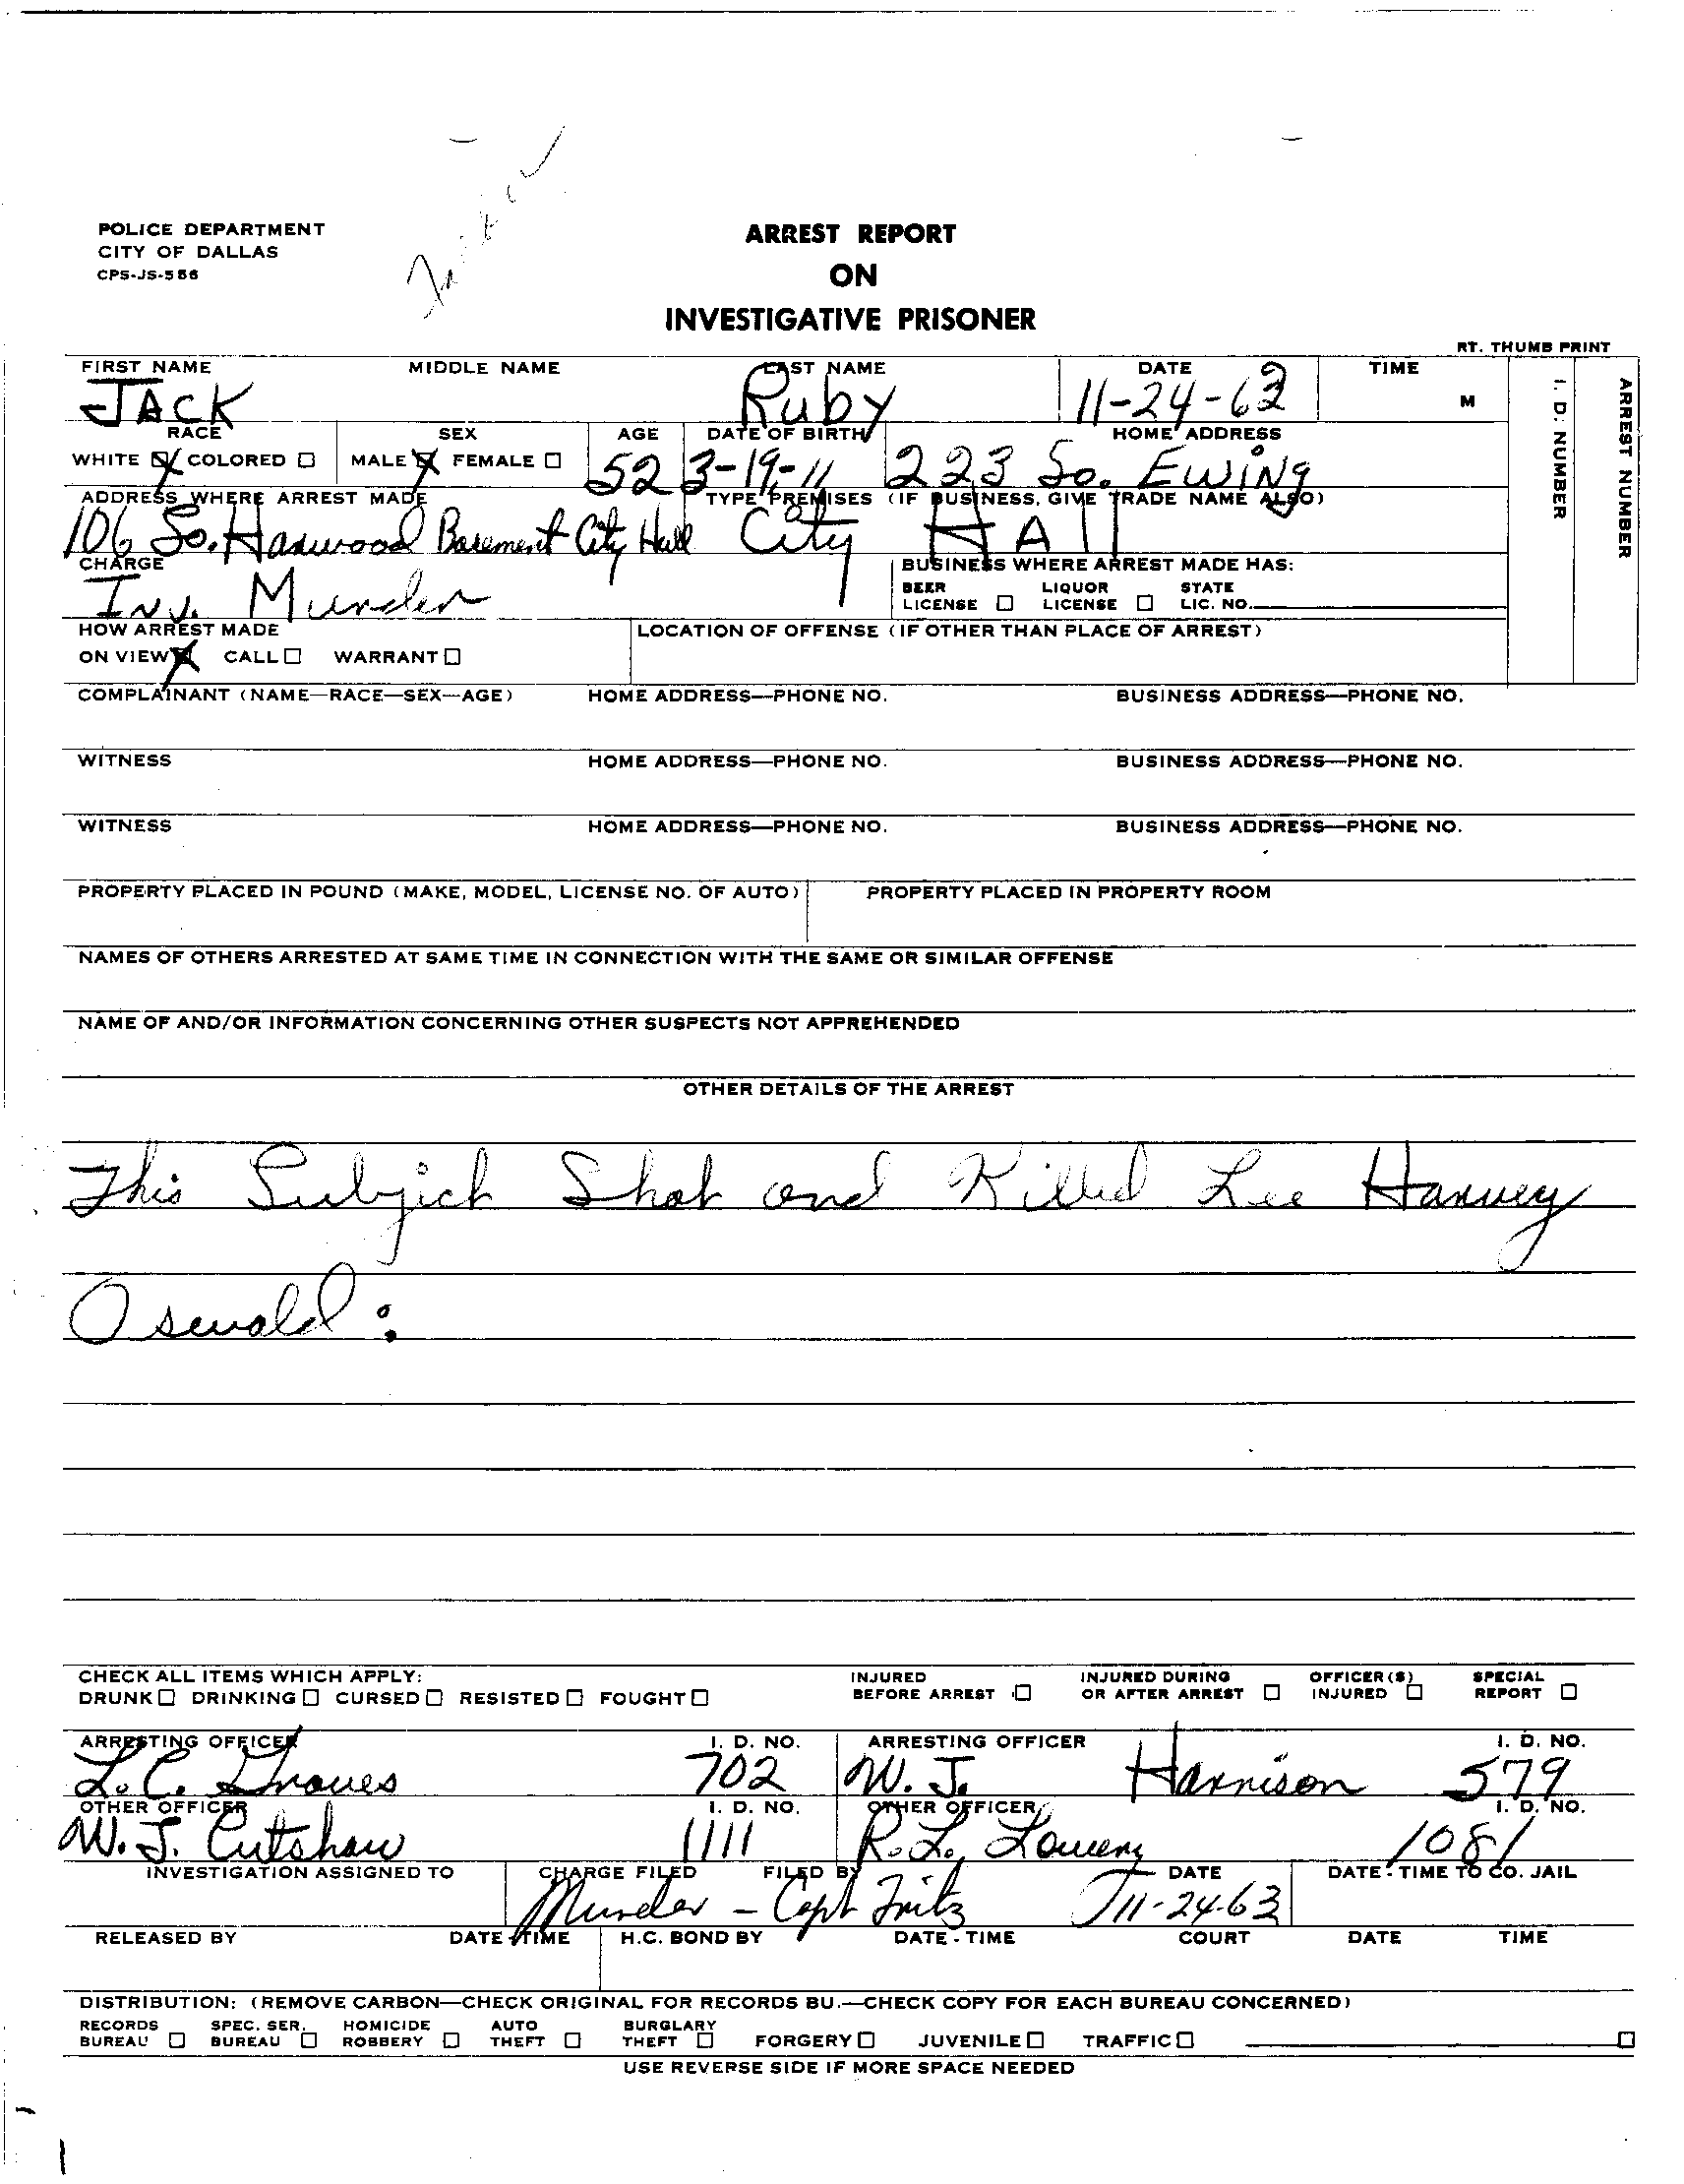 POLICE DEPARTMENT
CITY OF DALLAS
CPS-JS-586
ARREST REPORT
ON
INVESTIGATIVE PRISONER
RT. THUMB PRINT
FIRST NAME MIDDLE NAME LAST NAME DATE TIME
JACK Ruby 11-24-63 M
I. D. NUMBER
ARREST NUMBER
RACE SEX AGE DATE OF BIRTH HOME ADDRESS
WHITE ☒ COLORED ☐ MALE ☒ FEMALE ☐ 52 3-19-11 223 So. EWING
ADDRESS WHERE ARREST MADE TYPE PREMISES (IF BUSINESS, GIVE TRADE NAME ALSO)
106 So. Harwood Basement City Hall City HAll
CHARGE BUSINESS WHERE ARREST MADE HAS:
Inv. Murder BEER LICENSE ☐ LIQUOR LICENSE ☐ STATE LIC. NO.
HOW ARREST MADE LOCATION OF OFFENSE (IF OTHER THAN PLACE OF ARREST)
ON VIEW ☒ CALL ☐ WARRANT ☐
COMPLAINANT (NAME—RACE—SEX—AGE) HOME ADDRESS—PHONE NO. BUSINESS ADDRESS—PHONE NO.
WITNESS HOME ADDRESS—PHONE NO. BUSINESS ADDRESS—PHONE NO.
WITNESS HOME ADDRESS—PHONE NO. BUSINESS ADDRESS—PHONE NO.
PROPERTY PLACED IN POUND (MAKE, MODEL, LICENSE NO. OF AUTO) PROPERTY PLACED IN PROPERTY ROOM
NAMES OF OTHERS ARRESTED AT SAME TIME IN CONNECTION WITH THE SAME OR SIMILAR OFFENSE
NAME OF AND/OR INFORMATION CONCERNING OTHER SUSPECTS NOT APPREHENDED
OTHER DETAILS OF THE ARREST
This Subjict Shot and Killed Lee Harvey
Oswald:
CHECK ALL ITEMS WHICH APPLY: INJURED INJURED DURING OFFICER(S) SPECIAL
DRUNK ☐ DRINKING ☐ CURSED ☐ RESISTED ☐ FOUGHT ☐ BEFORE ARREST ☐ OR AFTER ARREST ☐ INJURED ☐ REPORT ☐
ARRESTING OFFICER I. D. NO. ARRESTING OFFICER I. D. NO.
L.C. Graves 702 W. J. Harrison 579
OTHER OFFICER I. D. NO. OTHER OFFICER I. D. NO.
W. J. Cutshaw 1111 R. L. Lowery 1081
INVESTIGATION ASSIGNED TO CHARGE FILED FILED BY DATE DATE - TIME TO CO. JAIL
Murder - Capt Fritz 11-24-63
RELEASED BY DATE - TIME H.C. BOND BY DATE - TIME COURT DATE TIME
DISTRIBUTION: (REMOVE CARBON—CHECK ORIGINAL FOR RECORDS BU.—CHECK COPY FOR EACH BUREAU CONCERNED)
RECORDS SPEC. SER. HOMICIDE AUTO BURGLARY
BUREAU ☐ BUREAU ☐ ROBBERY ☐ THEFT ☐ THEFT ☐ FORGERY ☐ JUVENILE ☐ TRAFFIC ☐ ☐
USE REVERSE SIDE IF MORE SPACE NEEDED